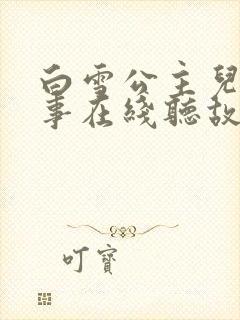 白雪公主兒
事在綫聽故
叮寶